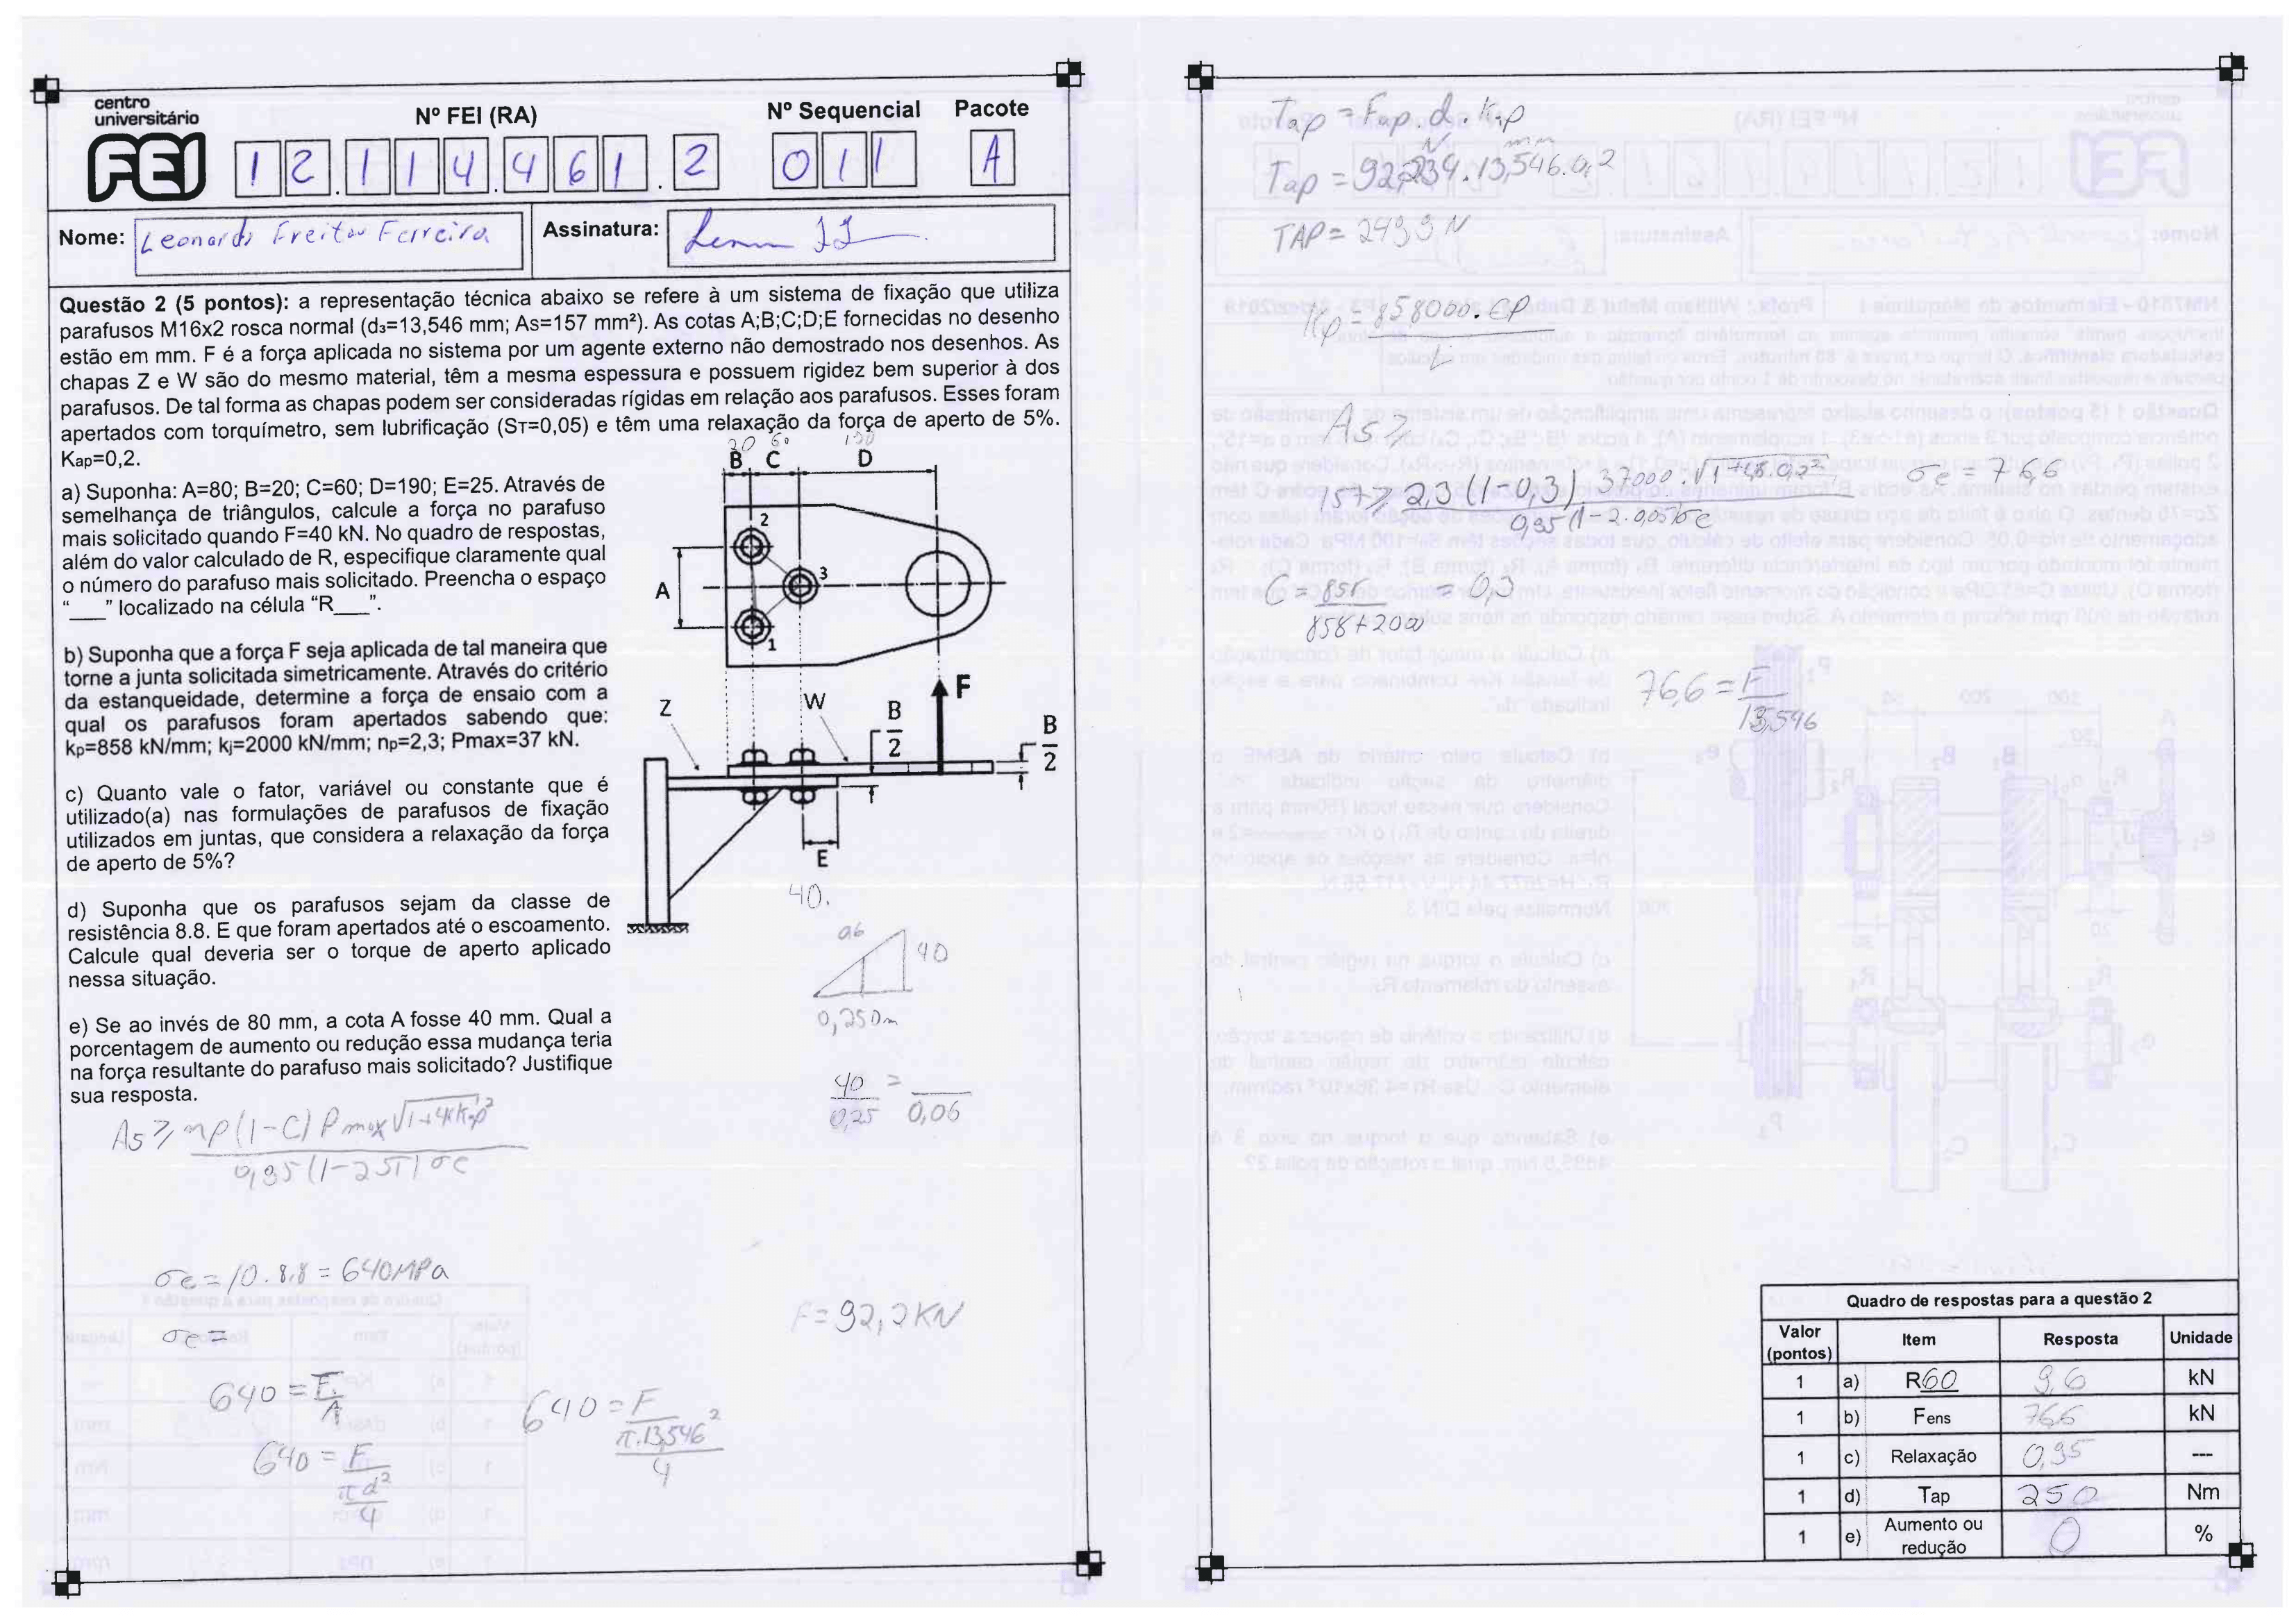 centro
universitário
FEI
Nº FEI (RA)
Nº Sequencial
Pacote
12.114.461.2
011
A
Nome: Leonardo Freitas Ferreira
Assinatura:
Questão 2 (5 pontos): a representação técnica abaixo se refere à um sistema de fixação que utiliza
parafusos M16x2 rosca normal (d₃=13,546 mm; As=157 mm²). As cotas A;B;C;D;E fornecidas no desenho
estão em mm. F é a força aplicada no sistema por um agente externo não demostrado nos desenhos. As
chapas Z e W são do mesmo material, têm a mesma espessura e possuem rigidez bem superior à dos
parafusos. De tal forma as chapas podem ser consideradas rígidas em relação aos parafusos. Esses foram
apertados com torquímetro, sem lubrificação (Sᴛ=0,05) e têm uma relaxação da força de aperto de 5%.
Kap=0,2.
a) Suponha: A=80; B=20; C=60; D=190; E=25. Através de
semelhança de triângulos, calcule a força no parafuso
mais solicitado quando F=40 kN. No quadro de respostas,
além do valor calculado de R, especifique claramente qual
o número do parafuso mais solicitado. Preencha o espaço
"___" localizado na célula "R___".
b) Suponha que a força F seja aplicada de tal maneira que
torne a junta solicitada simetricamente. Através do critério
da estanqueidade, determine a força de ensaio com a
qual os parafusos foram apertados sabendo que:
kp=858 kN/mm; kj=2000 kN/mm; np=2,3; Pmax=37 kN.
c) Quanto vale o fator, variável ou constante que é
utilizado(a) nas formulações de parafusos de fixação
utilizados em juntas, que considera a relaxação da força
de aperto de 5%?
d) Suponha que os parafusos sejam da classe de
resistência 8.8. E que foram apertados até o escoamento.
Calcule qual deveria ser o torque de aperto aplicado
nessa situação.
e) Se ao invés de 80 mm, a cota A fosse 40 mm. Qual a
porcentagem de aumento ou redução essa mudança teria
na força resultante do parafuso mais solicitado? Justifique
sua resposta.
20 60 190
B C D
2
3
A
1
F
Z
W
B
2
B
2
E
40.
9,6
40
0,250m
40 =
0,25 0,06
As ⩾ np(1-C) Pmax √1+48Kap²
0,95(1-2ST) σe
σe = 10.8.8 = 640MPa
σe =
640 = F
A
640 = F
π d²
4
640 = F
π.13,546²
4
F = 92,2KN
Tap = Fap. d. Kap
N mm
Tap = 92,234.13,546.0,2
TAP = 2499 N
Kp = 858000.EP
L
As ⩾
157 ⩾ 2,3 (1-0,3) . 37000.√1+48.0,2²
0,95 (1-2.0,05)σe
σe = 76,6
C = 858 = 0,3
858+2000
76,6 = F
13,546
Quadro de respostas para a questão 2
Valor
(pontos)
Item
Resposta
Unidade
1 a) R60 9,6 kN
1 b) Fens 76,6 kN
1 c) Relaxação 0,95 ---
1 d) Tap 250 Nm
1 e) Aumento ou
redução 0 %